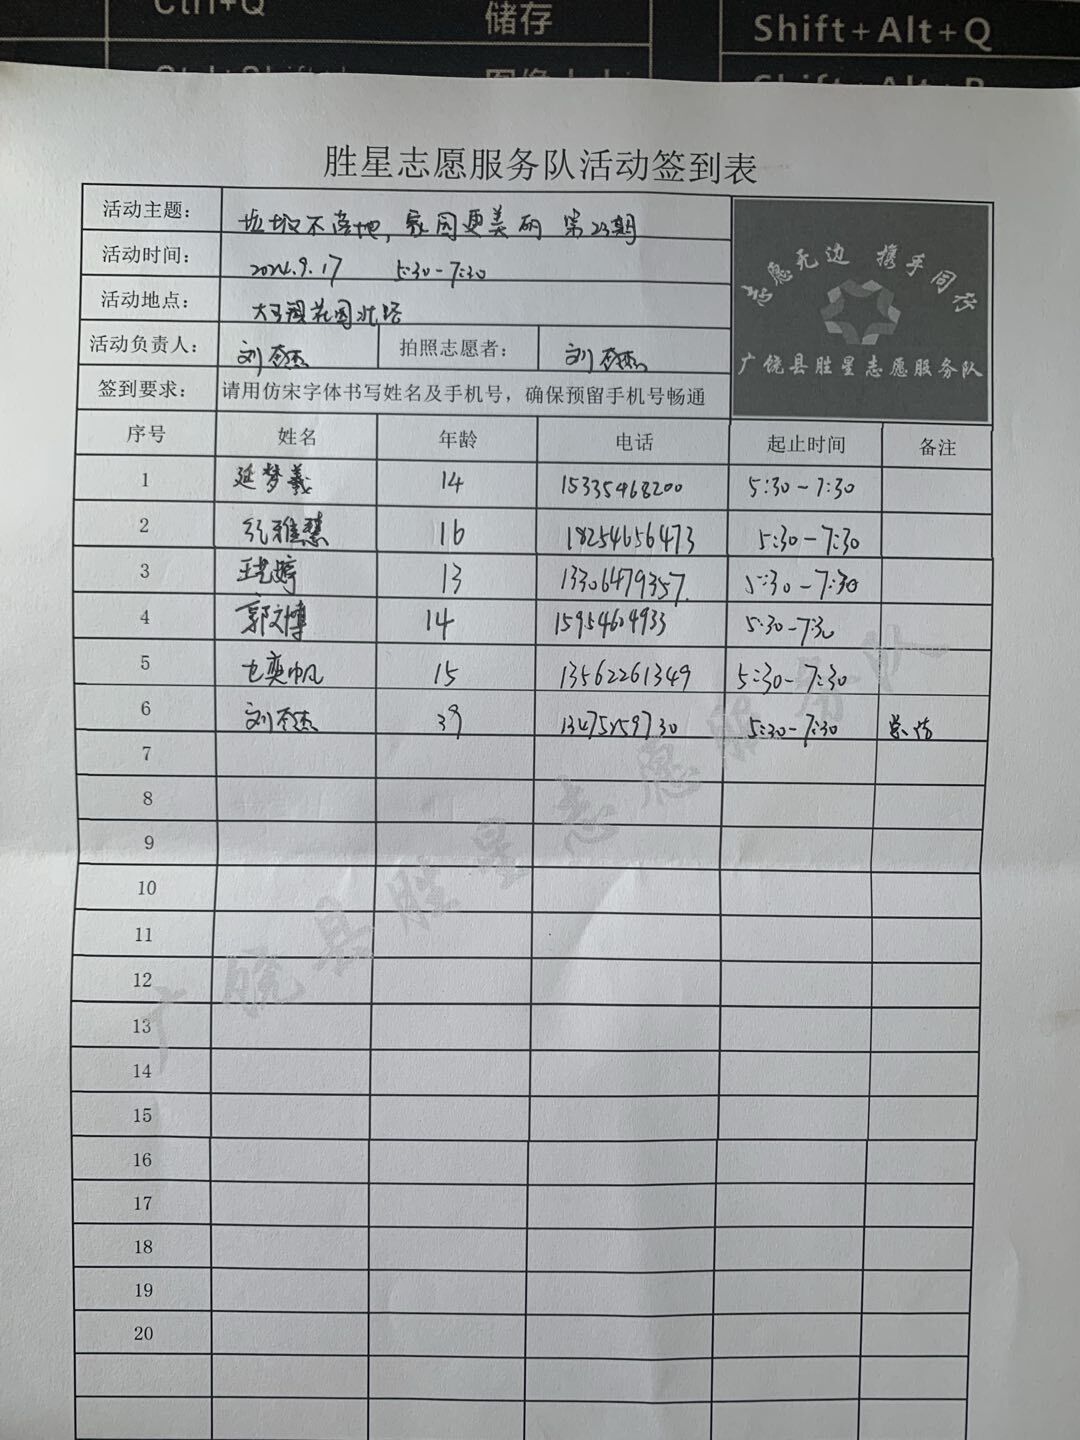 Ctrl+Q 储存 Shift+Alt+Q
胜星志愿服务队活动签到表
活动主题： 垃圾不落地，家园更美丽 第23期
活动时间： 2024.9.17 5:30-7:30
活动地点： 大王 花园北路
活动负责人： 刘 杰 拍照志愿者： 刘 杰
签到要求： 请用仿宋字体书写姓名及手机号，确保预留手机号畅通
志愿无边 携手同行
广饶县胜星志愿服务队
序号 姓名 年龄 电话 起止时间 备注
1 延梦羲 14 15335468200 5:30-7:30
2 雅慧 16 18254656473 5:30-7:30
3 婷 13 13306479357 5:30-7:30
4 郭文博 14 15954604933 5:30-7:30
5 奕帆 15 13562261349 5:30-7:30
6 刘 杰 39 13475459730 5:30-7:30
7
8
9
10
11
12
13
14
15
16
17
18
19
20
广饶县胜星志愿服务队